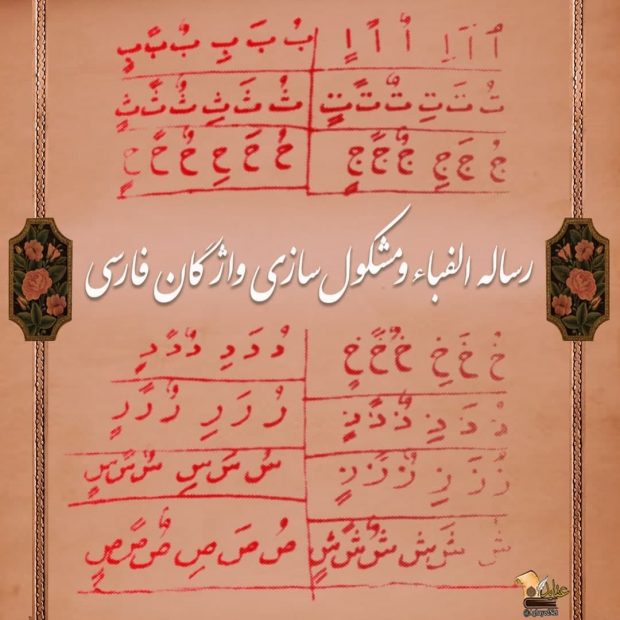 اُ اَ اِ اٌ اً اٍ بُ بَ بِ بٌ بً بٍ
تُ تَ تِ تٌ تً تٍ ثُ ثَ ثِ ثٌ ثً ثٍ
جُ جَ جِ جٌ جً جٍ حُ حَ حِ حٌ حً حٍ
رساله الفباء و مشکول سازی واژگان فارسی
خُ خَ خِ خٌ خً خٍ دُ دَ دِ دٌ دً دٍ
ذُ ذَ ذِ ذٌ ذً ذٍ رُ رَ رِ رٌ رً رٍ
زُ زَ زِ زٌ زً زٍ سُ سَ سِ سٌ سً سٍ
شُ شَ شِ شٌ شً شٍ صُ صَ صِ صٌ صً صٍ